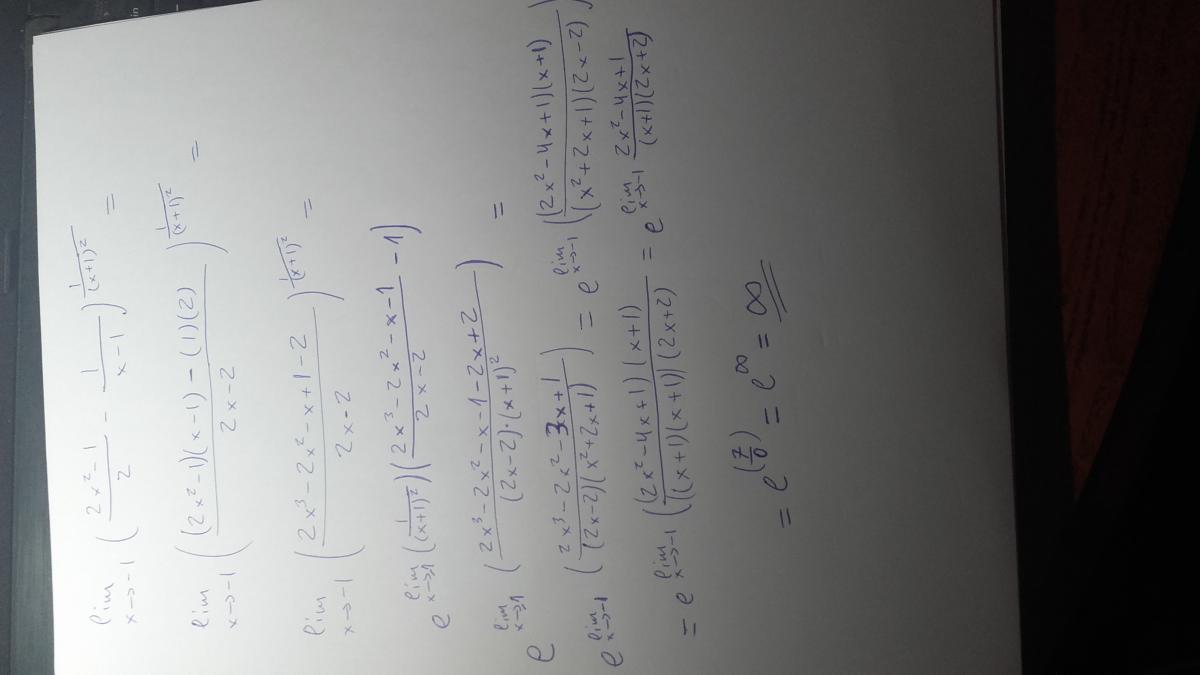 lim x→-1 ( (2x²-1)/2 - 1/(x-1) )^(1/(x+1)²) =
lim x→-1 ( ((2x²-1)(x-1) - (1)(2))/(2x-2) )^(1/(x+1)²) =
lim x→-1 ( (2x³-2x²-x+1-2)/(2x-2) )^(1/(x+1)²) =
e^( lim x→-1 (1/(x+1)²)((2x³-2x²-x-1)/(2x-2) - 1) )
e^( lim x→-1 ( (2x³-2x²-x-1-2x+2)/((2x-2)·(x+1)²) ) ) =
e^( lim x→-1 ( (2x³-2x²-3x+1)/((2x-2)(x²+2x+1)) ) ) = e^( lim x→-1 ( ((2x²-4x+1)(x+1))/((x²+2x+1)(2x-2)) ) )
= e^( lim x→-1 ( ((2x²-4x+1)(x+1))/(((x+1)(x+1))(2x+2)) ) ) = e^( lim x→-1 (2x²-4x+1)/((x+1)(2x+2)) )
= e^(7/0) = e^∞ = ∞